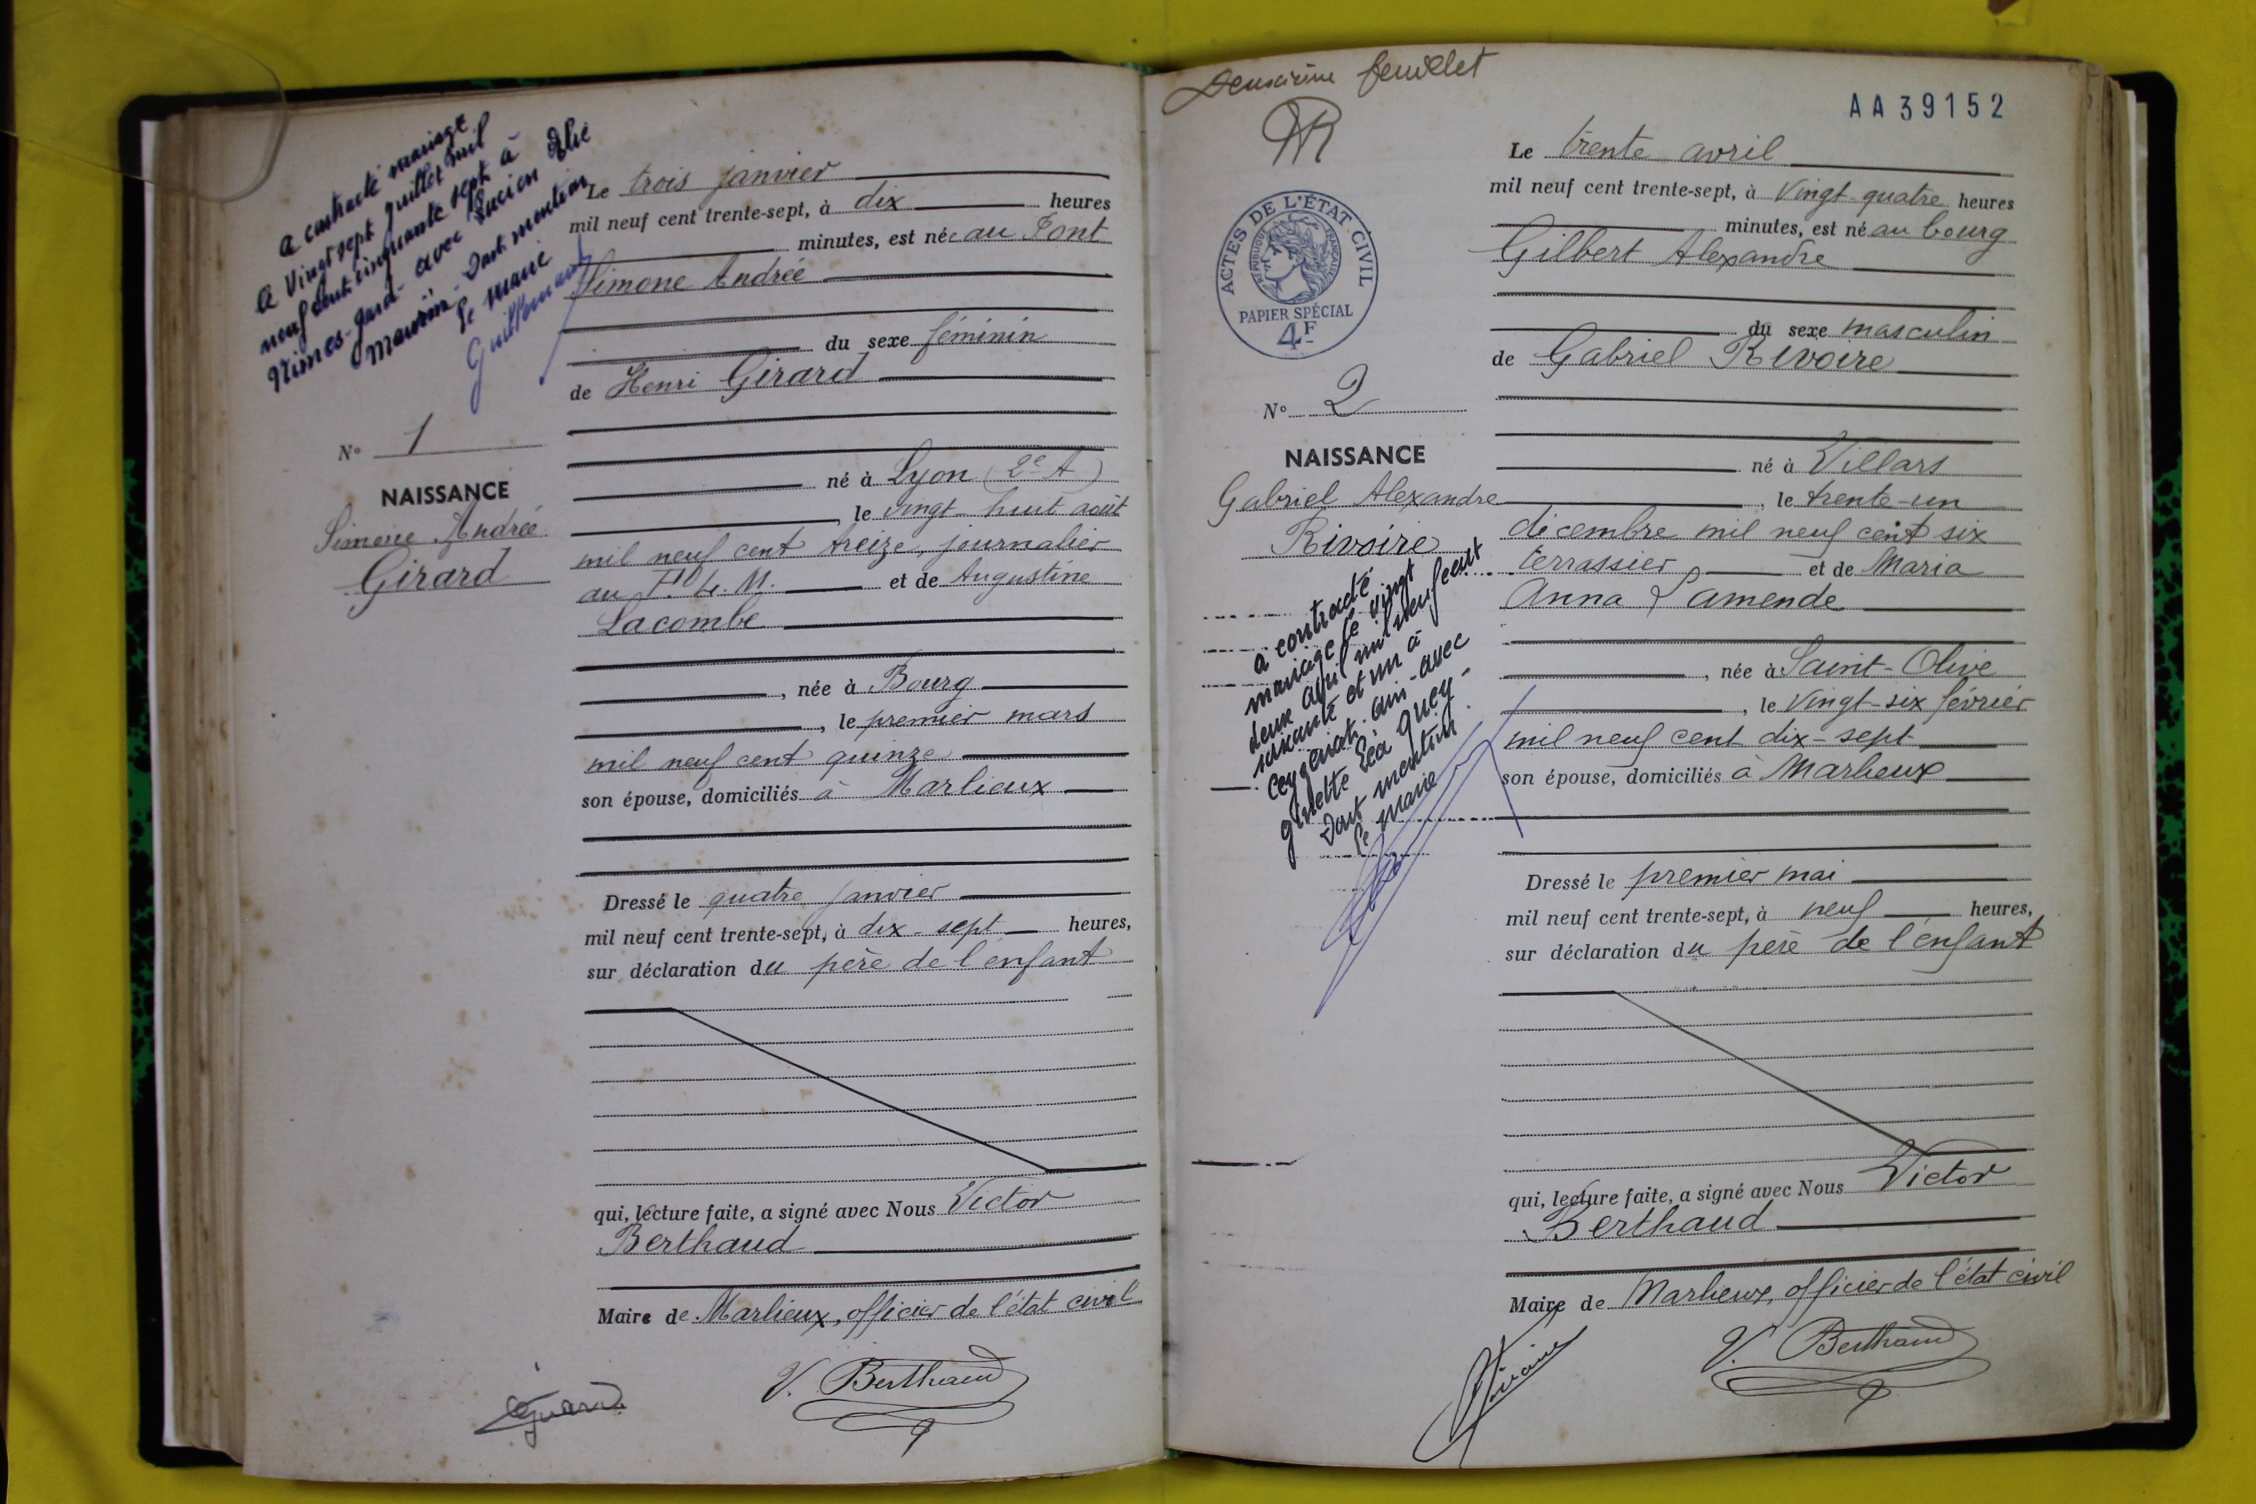 a contracté mariage
a Vingt sept juillet mil
neuf cent cinquante sept à
Nimes-gard- avec Lucien Elie
Maurin - Dont mention
Le maire
N° 1
NAISSANCE
Simone Andrée
Girard
Le trois janvier
mil neuf cent trente-sept, à dix heures
minutes, est née au Pont
Simone Andrée
du sexe féminin
de Henri Girard
né à Lyon (2e A)
, le vingt-huit août
mil neuf cent treize, journalier
au et de Augustine
Lacombe
, née à Bourg
, le premier mars
mil neuf cent quinze
son épouse, domiciliés à Marlieux
Dressé le quatre janvier
mil neuf cent trente-sept, à dix-sept heures,
sur déclaration du père de l'enfant
qui, lecture faite, a signé avec Nous Victor
Berthaud
Maire de Marlieux, officier de l'état civil
Girard
V. Berthaud
Deuxième feuillet
AA39152
ACTES DE L'ÉTAT CIVIL
RÉPUBLIQUE FRANÇAISE
PAPIER SPÉCIAL
4F
N° 2
NAISSANCE
Gabriel Alexandre
Rivoire
a contracté
mariage le vingt
deux avril mil neuf cent
soixante et un à
Ceyzeriat-ain-avec
ginette Léa Guey-
Dont mention
Le maire
Le trente avril
mil neuf cent trente-sept, à vingt-quatre heures
minutes, est né au bourg
Gilbert Alexandre
du sexe masculin
de Gabriel Rivoire
né à Villars
, le trente-un
décembre mil neuf cent six
terrassier et de Maria
Anna Lamende
, née à Saint-Olive
, le vingt-six février
mil neuf cent dix-sept
son épouse, domiciliés à Marlieux
Dressé le premier mai
mil neuf cent trente-sept, à neuf heures,
sur déclaration du père de l'enfant
qui, lecture faite, a signé avec Nous Victor
Berthaud
Maire de Marlieux, officier de l'état civil
Rivoire
V. Berthaud